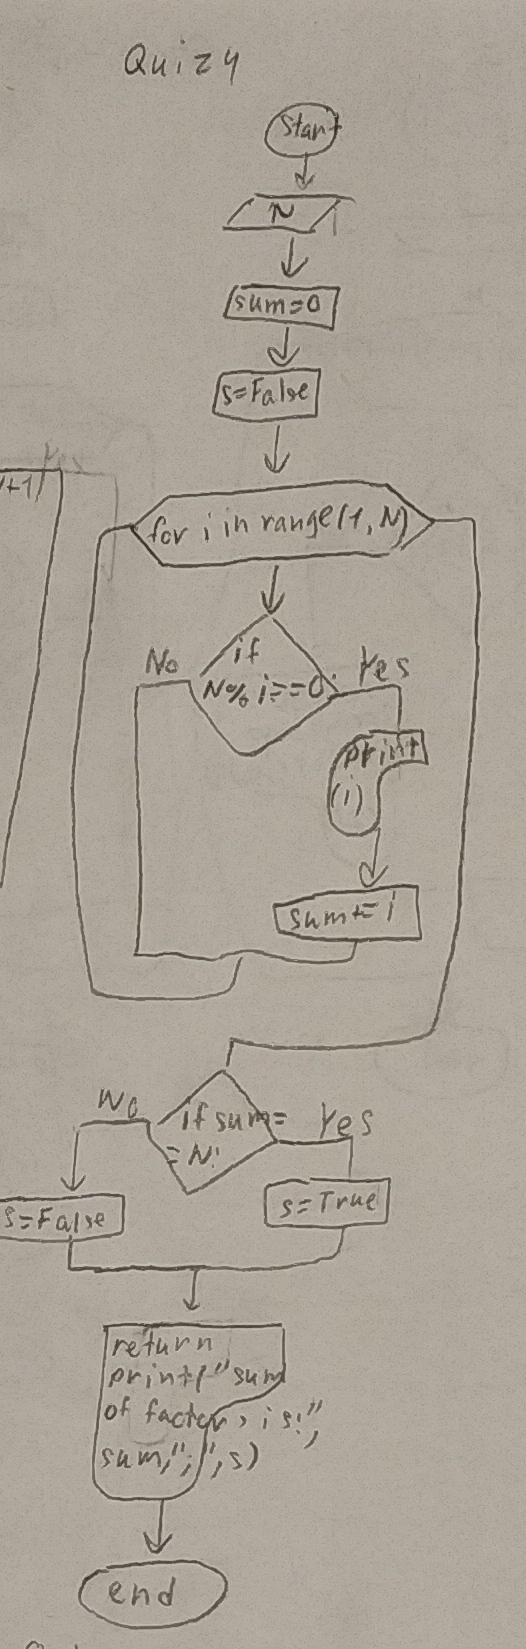 Quiz 4
Start
N
sum=0
s=False
Yes
+1)
for i in range(1, N)
if
N% i==0:
No
Yes
print
(i)
sum+= i
if sum=
= N:
No
Yes
s=False
s=True
return
print("sum
of factor, is:",
sum,";",s)
end